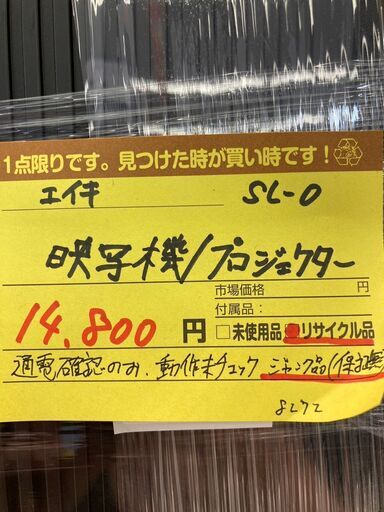 1点限りです。見つけた時が買い時です!
エイキ SL-0
映写機/プロジェクター
市場価格 円
付属品:
14,800円 □未使用品 ■リサイクル品
通電確認のみ、動作未チェック ジャンク品(保証無)
8272